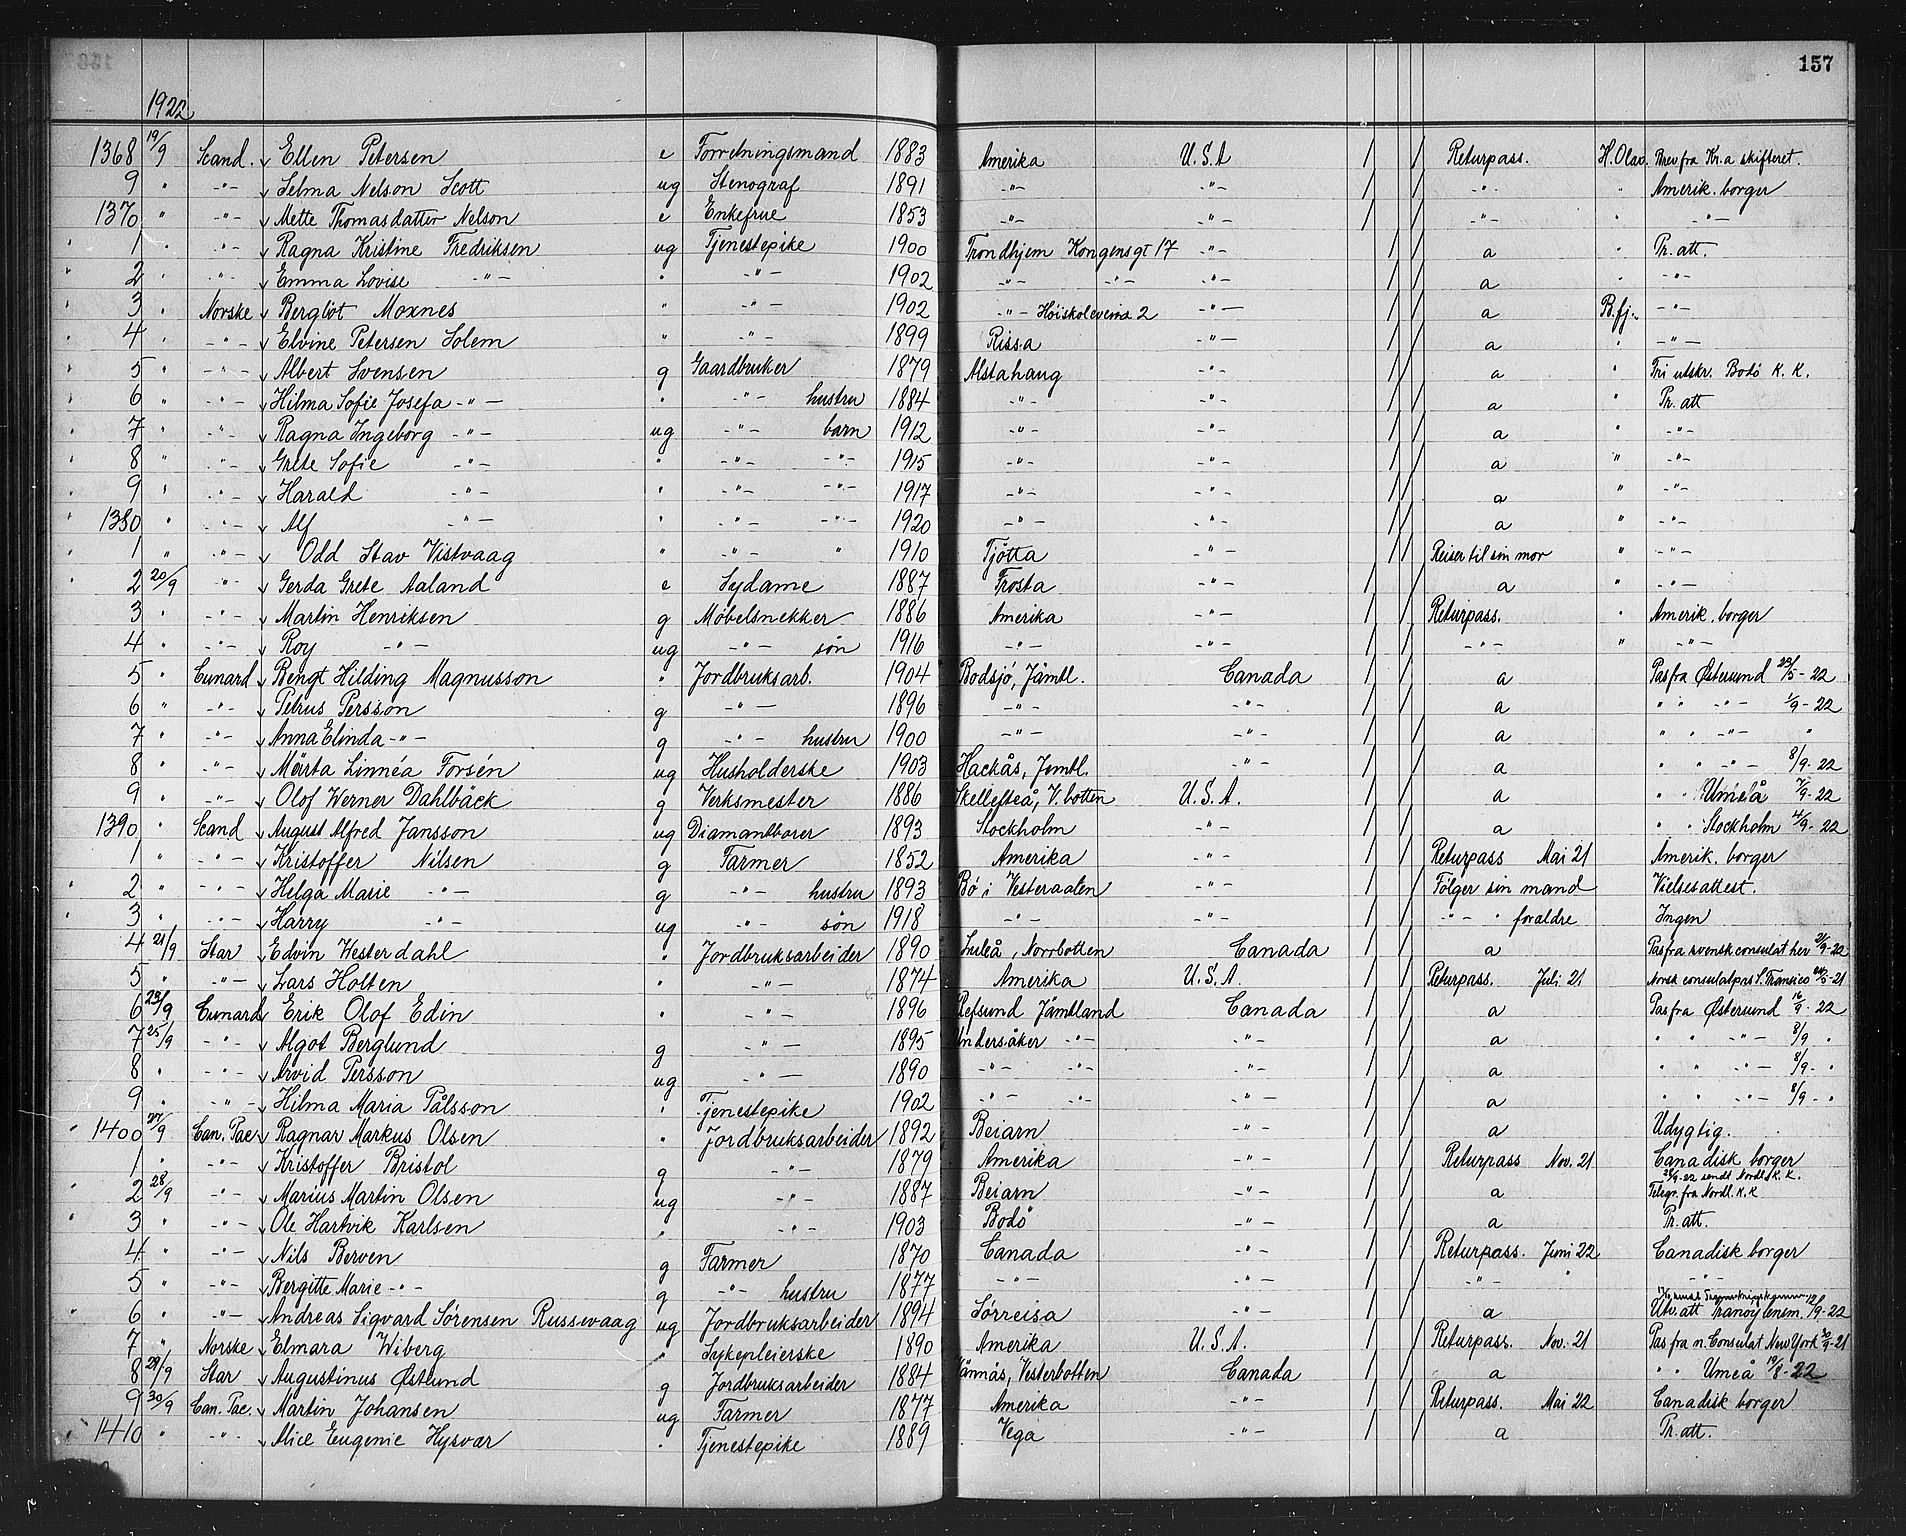 157
1922
1368 19/9 Scand. v Ellen Petersen e Forretningsmand 1883 Amerika U.S.A / / / Returpass. H. Olav. Brev fra Kr.a skifteret.
9 " -"- v Selma Nelson Scott ug Stenograf 1891 -"- -"- / / / -"- " Amerik. borger
1370 " -"- v Mette Thomasdatter Nelson e Enkefrue 1853 -"- -"- / -"- " -"-
1 " -"- v Ragna Kristine Fredriksen ug Tjenestepike 1900 Trondhjem Kongensgt 17 -"- / / / a " Pr. att.
2 " -"- v Emma Lovise -"- " -"- 1902 -"- -"- -"- / / / a " -"-
3 " Norske v Bergljót Moxnes " -"- 1902 -"- Høiskoleveina 2 -"- / / / a B.fj. -"-
4 " -"- v Elvine Petersen Solem " -"- 1899 Rissa -"- / / / a " -"-
5 " -"- v Albert Svensen g Gaardbruker 1879 Alstahaug -"- / / / a " Fri utskr. Bodø K. K.
6 " -"- v Hilma Sofie Josefa -"- " -"- hustru 1884 -"- -"- / / / a " Pr. att
7 " -"- v Ragna Ingeborg -"- ug -"- barn 1912 -"- -"- / / / a " -"-
8 " -"- v Grete Sofie -"- " -"- -"- 1915 -"- -"- / / / a " -"-
9 " -"- v Harald -"- " -"- -"- 1917 -"- -"- / / / a " -"-
1380 " -"- v Alf -"- " -"- -"- 1920 -"- -"- / / / a " -"-
1 " -"- v Odd Stav Vistvaag " -"- " 1910 Tjøtta -"- / / / Reiser til sin mor " -"-
2 20/9 -"- v Gerda Grete Aaland e Sydame 1887 Frosta -"- / / / a " -"-
3 " -"- v Martin Henriksen g Møbelsnekker 1886 Amerika -"- / / / Returpass. " Amerik. borger
4 " -"- v Roy -"- ug -"- søn 1916 -"- -"- / / / -"- " -"-
5 " Cunard v Bengt Hilding Magnusson " Jordbruksarb. 1904 Bodsjö, Jämtl. Canada / / / a Pas fra Østersund 23/5 - 22
6 " -"- v Petrus Persson g -"- 1896 -"- -"- / / / a " " -"- 1/9 - 22
7 " -"- v Anna Elinda -"- g -"- hustru 1900 -"- -"- / / / a " " -"- "
8 " -"- v Märta Linnéa Forsén ug Husholderske 1903 Hackås, Jemtl. -"- / / / a " " -"- 8/9 - 22
9 " -"- v Olof Werner Dahlbäck g Verksmester 1886 Skellefteå, V. botten U.S.A. / / / a " " Umeå 7/9 - 22
1390 " Scand v August Alfred Jansson ug Diamantborer 1893 Stockholm -"- / / / a " " Stockholm 4/9 - 22
1 " -"- v Kristoffer Nilsen g Farmer 1852 Amerika -"- / / / Returpass Mai 21 Amerik. borger
2 " -"- v Helga Marie -"- g -"- hustru 1893 Bø i Vesteraalen -"- / / / Følger sin mand Vielsesattest.
3 " -"- v Harry -"- ug -"- søn 1918 -"- -"- / / / -"- " foraldre Ingen
4 21/9 Star v Edvin Westerdahl " Jordbruksarbeider 1890 Luleå, Norrbotten Canada / / / a Pas fra svensk consulat her 21/9 - 22
5 " -"- v Lars Holten " -"- 1874 Amerika U.S.A. / / / Returpass. Juli 21 Norsk consulatpas S. Francisco -21
6 23/9 Cunard v Erik Olof Edin " -"- 1896 Refsund Jämtland Canada / / / a Pas fra Østersund 16/9 - 22
7 25/9 -"- v Algot Berglund g -"- 1895 Undersåker -"- -"- / / / a " " -"- 8/9 "
8 " -"- v Arvid Persson ug -"- 1890 -"- -"- -"- / / / a " " -"- 8/9 - "
9 " -"- v Hilma Maria Pålsson " Tjenestepike 1902 -"- -"- -"- / / / a " " -"- 8/9 - "
1400 27/9 Can. Pac v Ragnar Markus Olsen " Jordbruksarbeider 1892 Beiarn -"- / / / a Udygtig.
1 " -"- v Kristoffer Bristol g -"- 1879 Amerika -"- / / / Returpass Nov. 21 Canadisk borger
2 28/9 -"- v Marius Martin Olsen ug -"- 1887 Beiarn -"- / / / a 28/9-22 sendt Nordl. K. K. Telegr. fra Nordl. K. K
3 " -"- v Ole Hartvik Karlsen " -"- 1903 Bodö -"- / / / a Pr. att.
4 " -"- v Nils Berven g Farmer 1870 Canada -"- / / / Returpass. Juni 22 Canadisk borger
5 " -"- v Bergitte Marie -"- g -"- hustru 1877 -"- -"- / / / -"- " -"-
6 " -"- v Andreas Sigvard Sørensen Russevaag ug Jordbruksarbeider 1894 Sørreisa -"- / / / a Utv. att Tranøy lensm. 12/9 - 22
7 " Norske v Elmara Wiberg " Sykepleierske 1890 Amerika U.S.A. / / / Returpass. Nov. 21 Pas fra n. Consulat New York 30/9 - 21
8 29/9 Star v Augustinus Østlund g Jordbruksarbeider 1884 Vännäs, Vesterbotten Canada / / / a " " Umeå 19/8 - 22
9 30/9 Can. Pac. v Martin Johansen ug Farmer 1877 Amerika -"- / / / Returpass. Mai 22 Canadisk borger
1410 " -"- v Alice Eugenie Hysvær " Tjenestepike 1889 Vega -"- / / / a Pr. att.